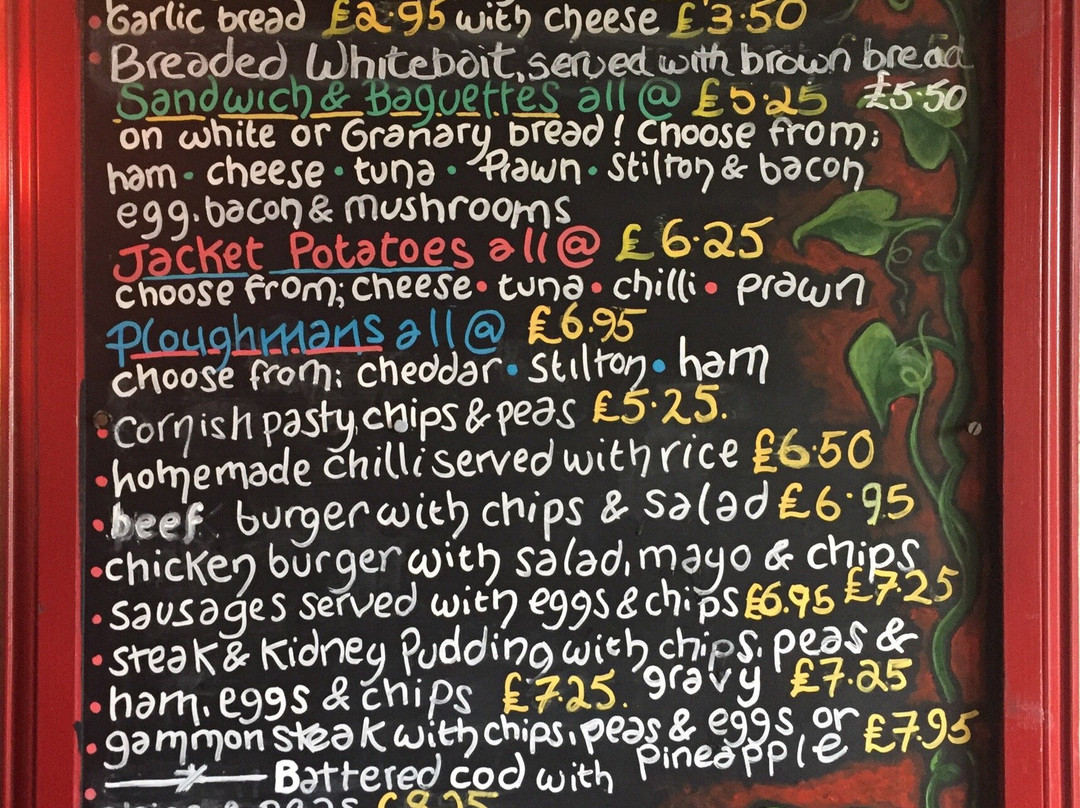 Garlic bread £2.95 with cheese £3.50
Breaded Whitebait, served with brown bread
£5.50
Sandwich & Baguettes all @ £5.25
on white or Granary bread! Choose from;
ham • cheese • tuna • Prawn • Stilton & bacon
egg. bacon & mushrooms
Jacket Potatoes all @ £6.25
choose from; cheese • tuna • chilli • prawn
Ploughmans all @ £6.95
choose from: cheddar • stilton • ham
• cornish pasty chips & peas £5.25.
• homemade chilli served with rice £6.50
• beef burger with chips & salad £6.95
• chicken burger with salad, mayo & chips
£7.25
• sausages served with eggs & chips £6.95
• steak & kidney Pudding with chips. peas &
gravy £7.25
• ham. eggs & chips £7.25.
• gammon steak with chips, peas & eggs or
pineapple £7.95
• Battered cod with
chips & peas £8.25